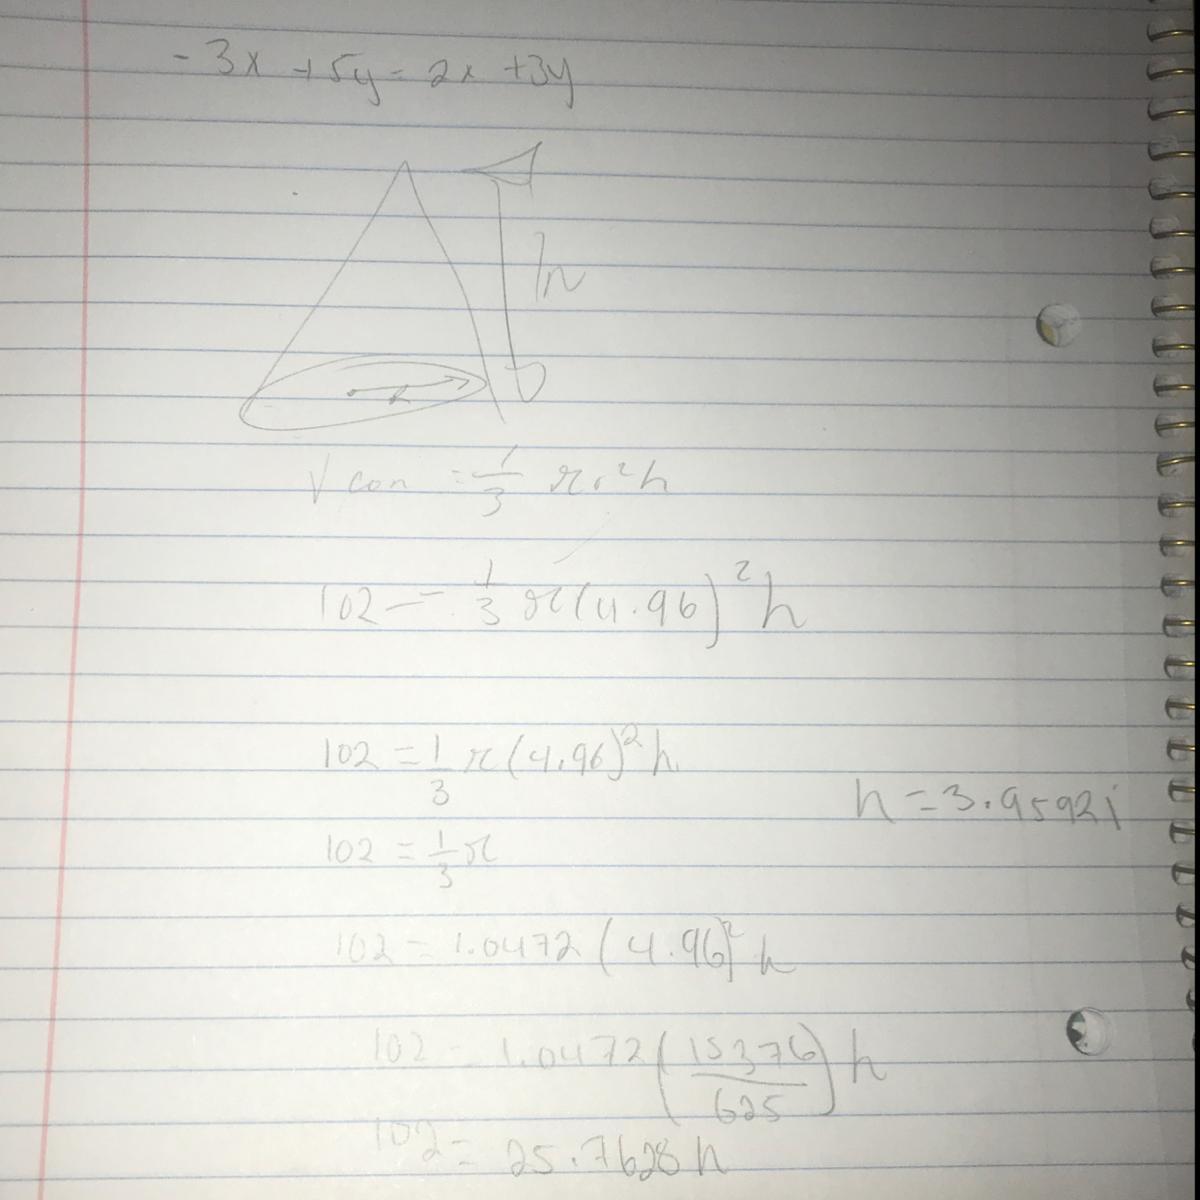 -3x +5y - 2x +3y
h
r
V con = 1/3 πr²h
102 = 1/3 π(4.96)²h
102 = 1/3 π(4.96)²h
h = 3.9592i
102 = 1/3 π
102 = 1.0472 (4.96)² h
102 = 1.0472 (15376/625) h
102 = 25.7628 h